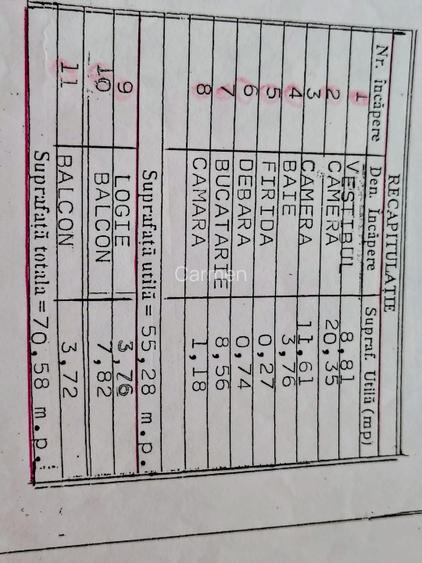 RECAPITULAȚIE
Nr. încăpere Den. Încăpere Supraf. Utilă (mp)
1 VESTIBUL 8,81
2 CAMERA 20,35
3 CAMERA 11,61
4 BAIE 3,76
5 FIRIDA 0,27
6 DEBARA 0,74
7 BUCATARIE 8,56
8 CAMARA 1,18
Suprafață utilă = 55,28 m.p.
9 LOGIE 3,76
10 BALCON 7,82
11 BALCON 3,72
Suprafață totala = 70,58 m.p.
Carmen